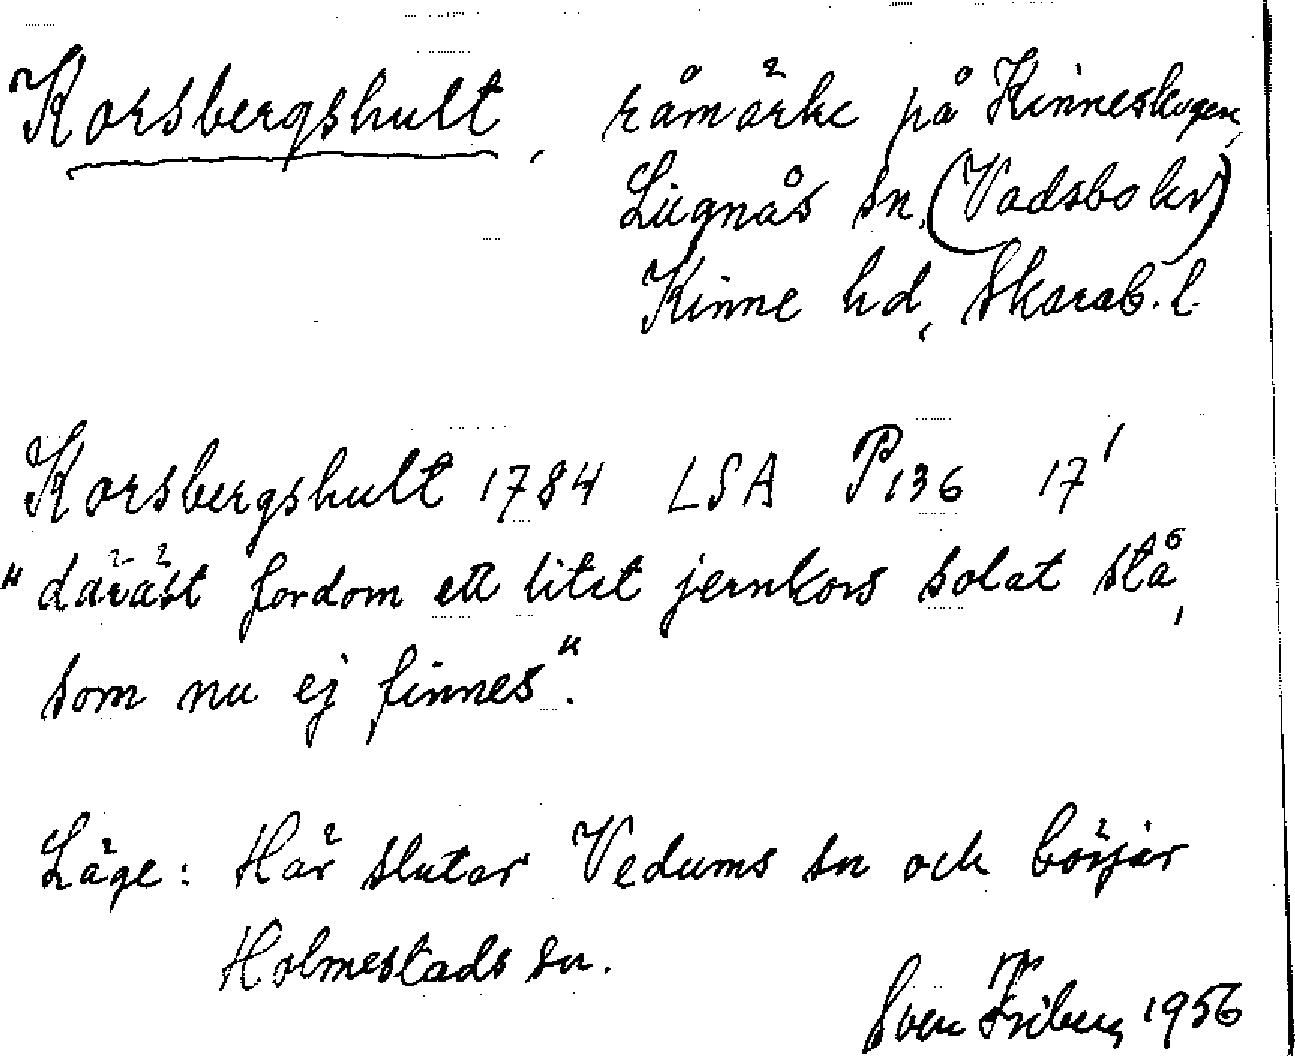 Korsbergshult, råmärke på Kinneskogen,
Lugnås sn, (Vadsbo hd)
Kinne hd, Skarab. l.
Korsbergshult 1784 LSA P136 17'
"däräst fordom ett litet jernkors solat stå,
som nu ej finnes".
Läge: Här slutar Vedums sn och börjar
Holmestads sn.
Sven Friberg 1956